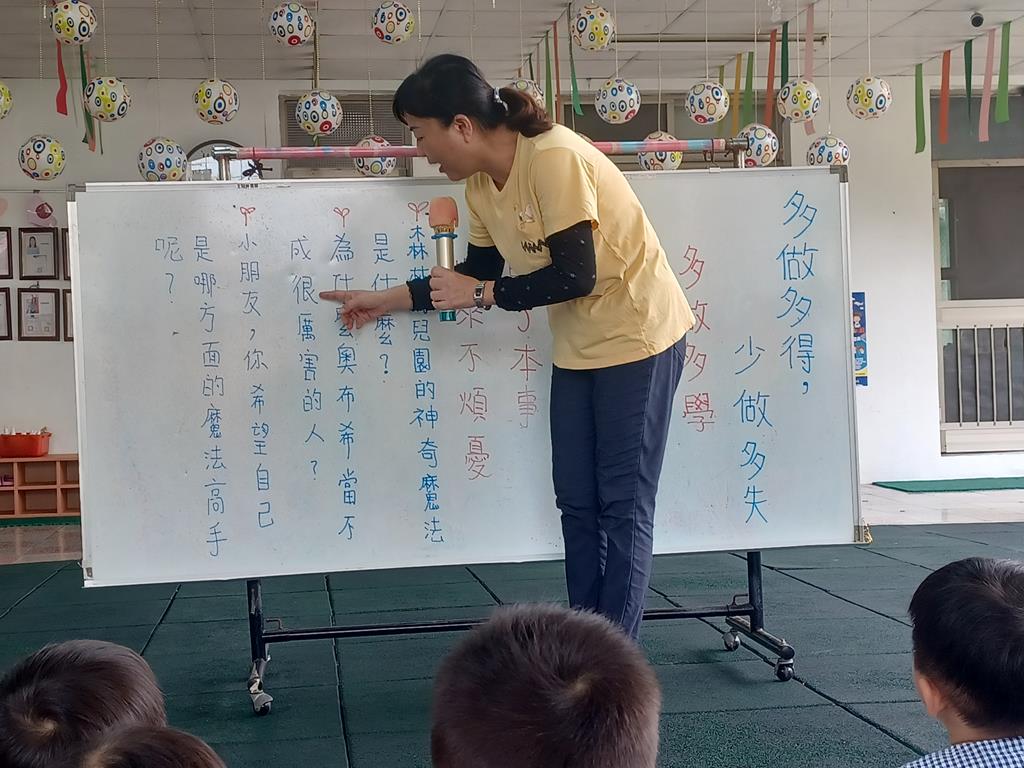 多做多得,
少做多失
多做多學
本事
不煩憂
森林兒園的神奇魔法
是什麼?
為什麼奧布希當不
成很厲害的人?
小朋友,你希望自己
是哪方面的魔法高手
呢?